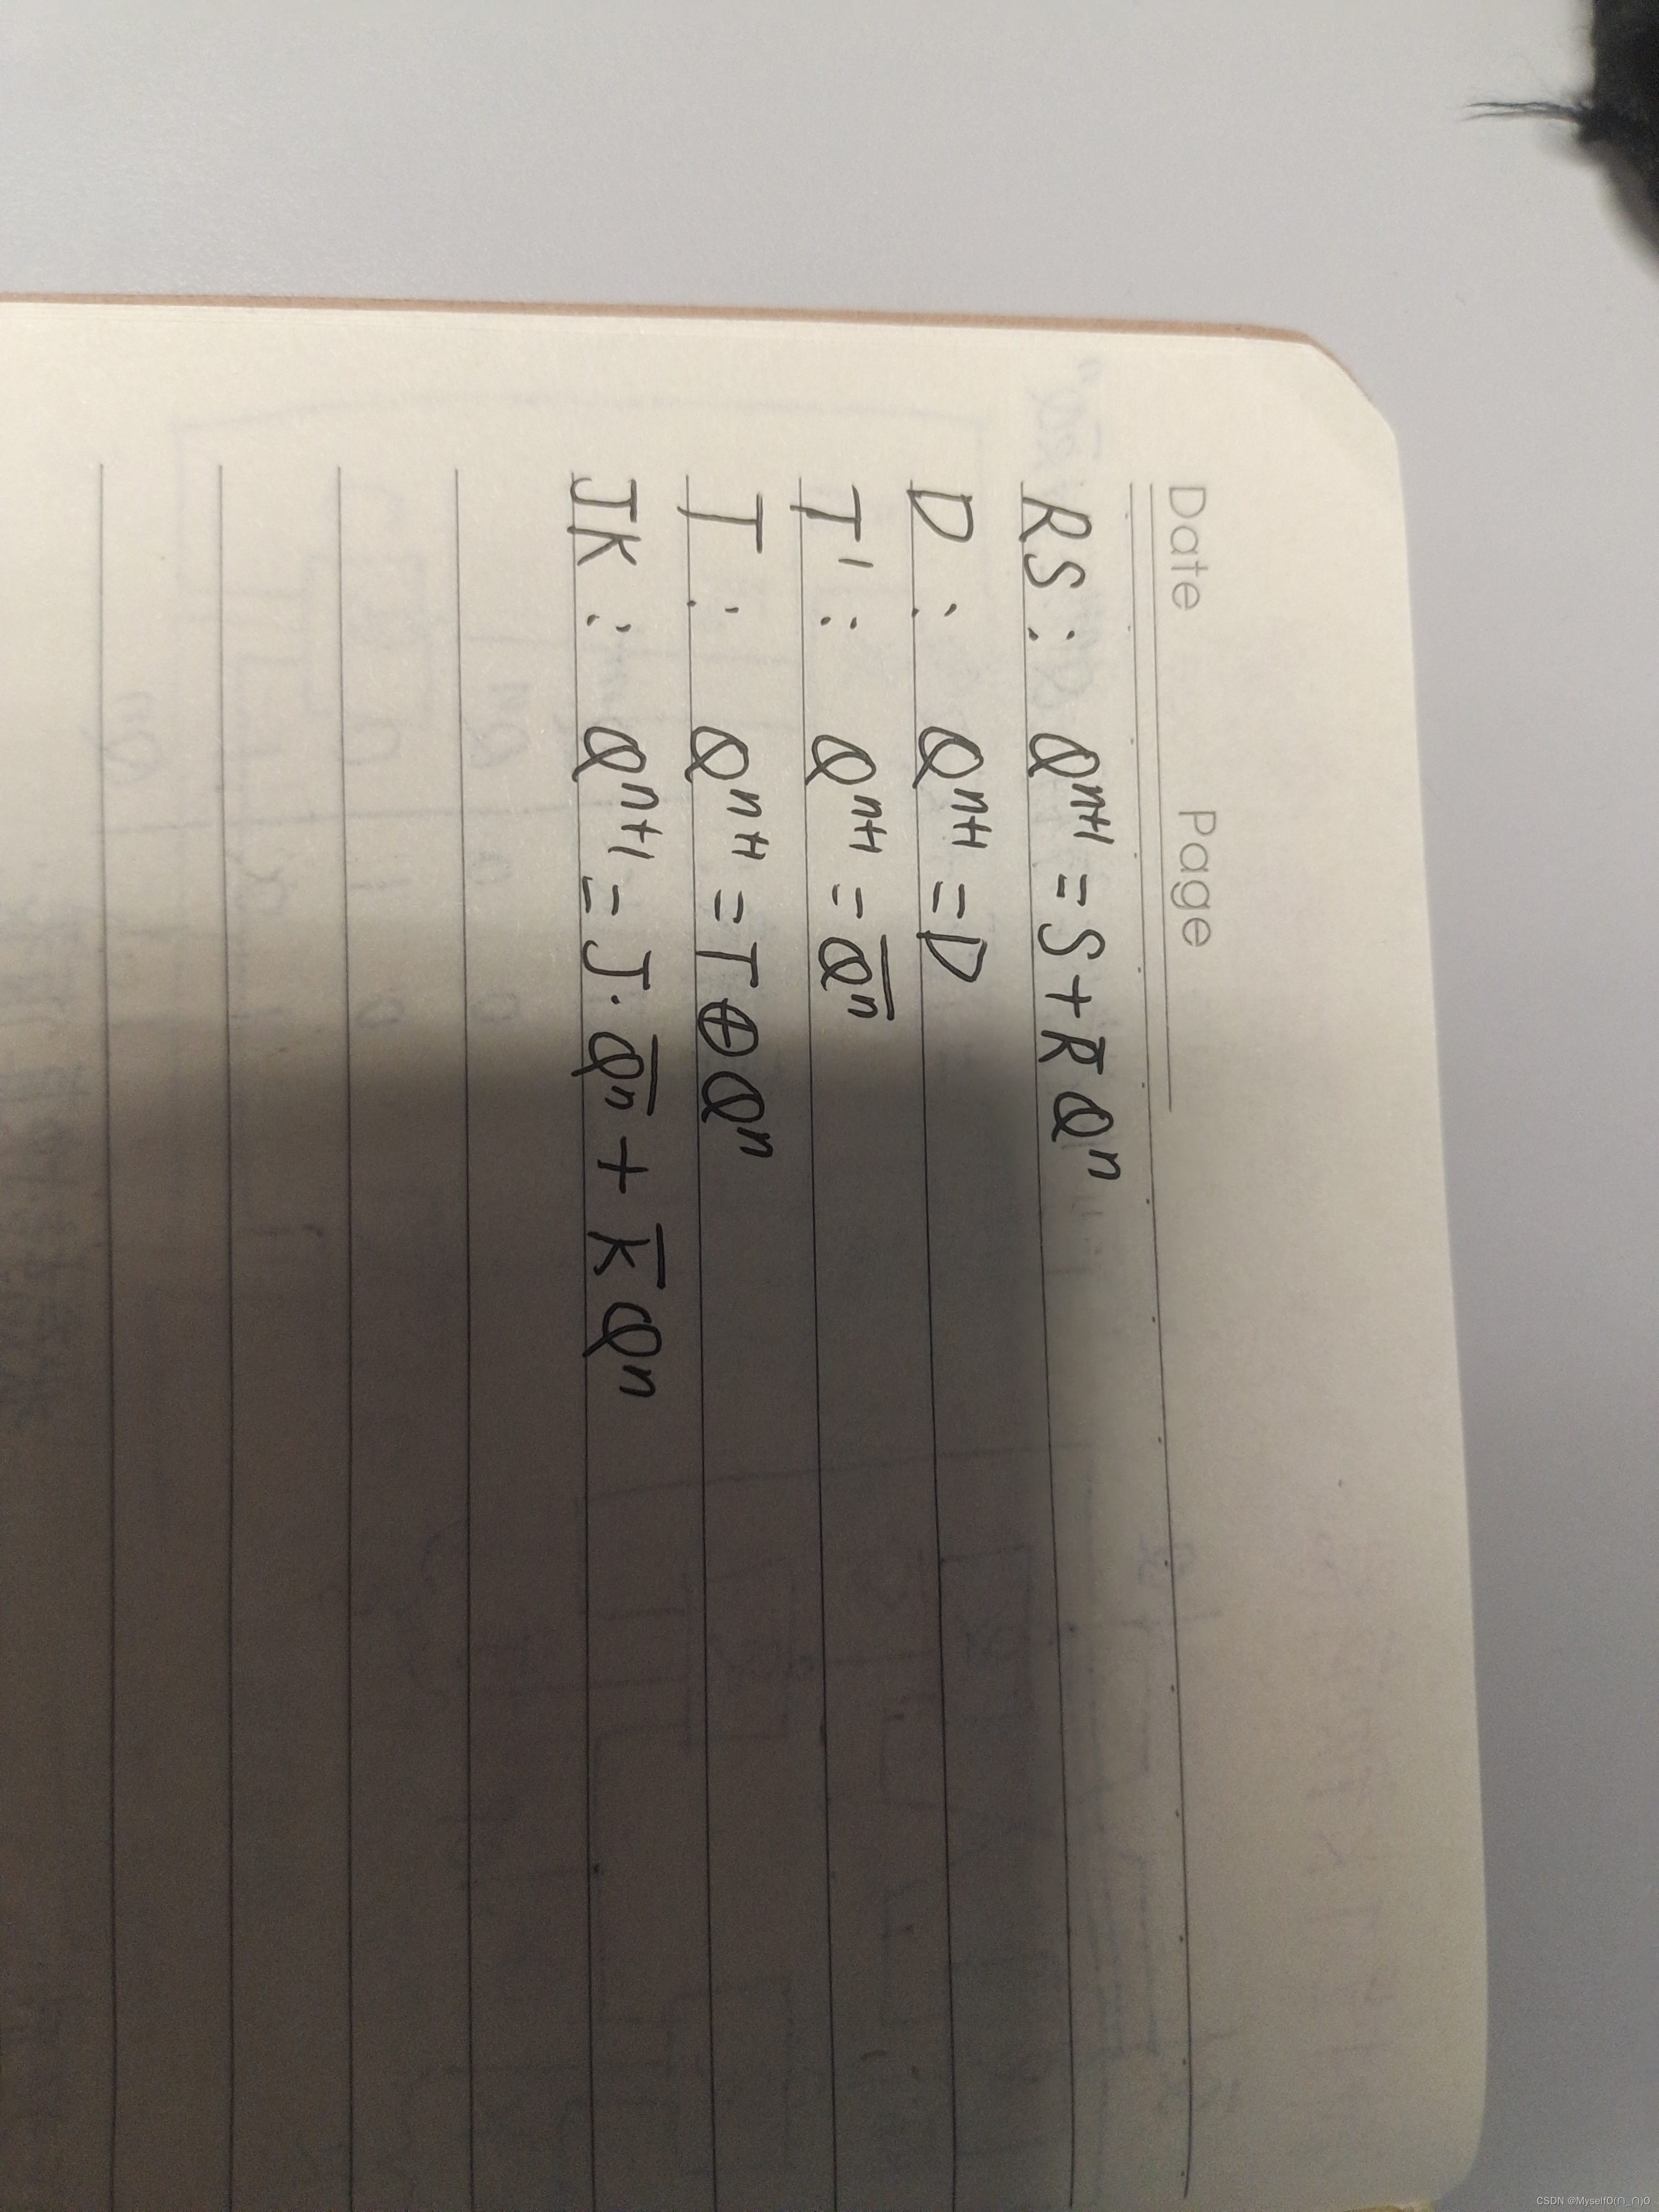 Date Page
RS: Qⁿ⁺¹ = S + R̅ Qⁿ
D: Qⁿ⁺¹ = D
T': Qⁿ⁺¹ = \overline{Qⁿ}
T: Qⁿ⁺¹ = T ⊕ Qⁿ
JK: Qⁿ⁺¹ = J · \overline{Qⁿ} + K̅ Qⁿ
CSDN @MyselfO(∩_∩)O